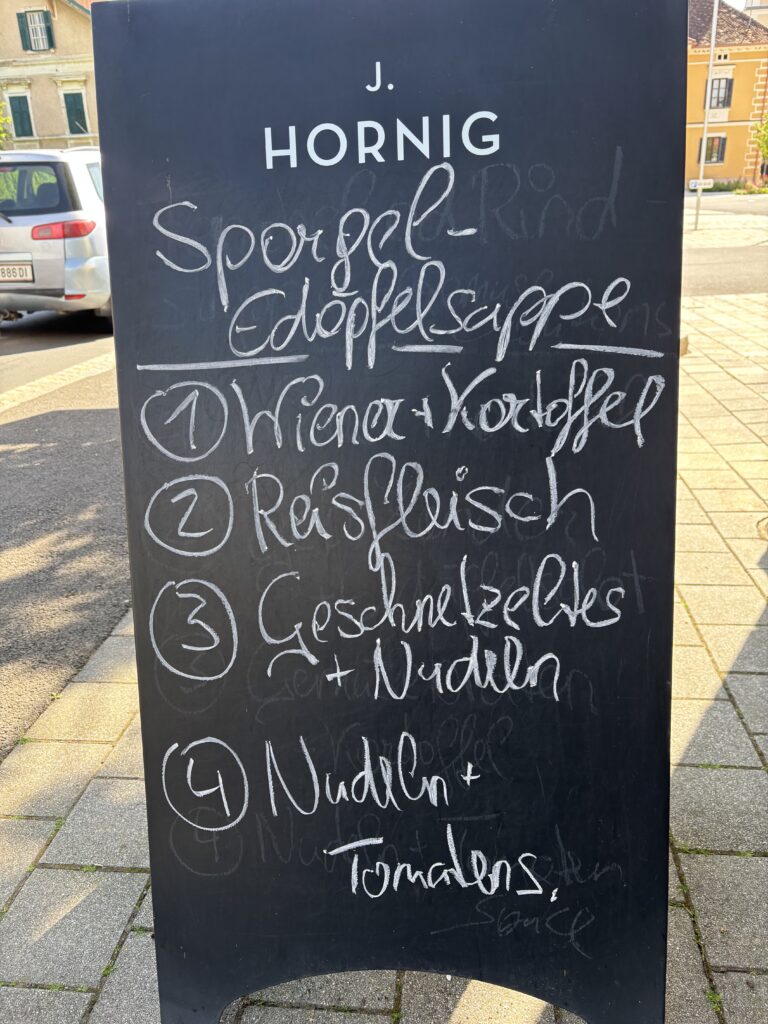 J.
HORNIG
Spargel-
Erdäpfelsuppe
① Wiener + Kartoffel
② Reisfleisch
③ Geschnetzeltes
+ Nudeln
④ Nudeln +
Tomatens.
886 DI